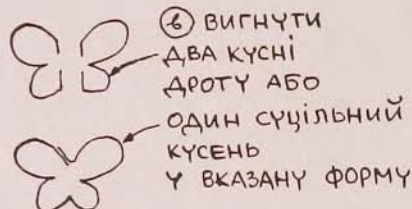 в ВИГНУТИ
ДВА КУСНІ
ДРОТУ АБО
ОДИН СУЦІЛЬНИЙ
КУСЕНЬ
У ВКАЗАНУ ФОРМУ